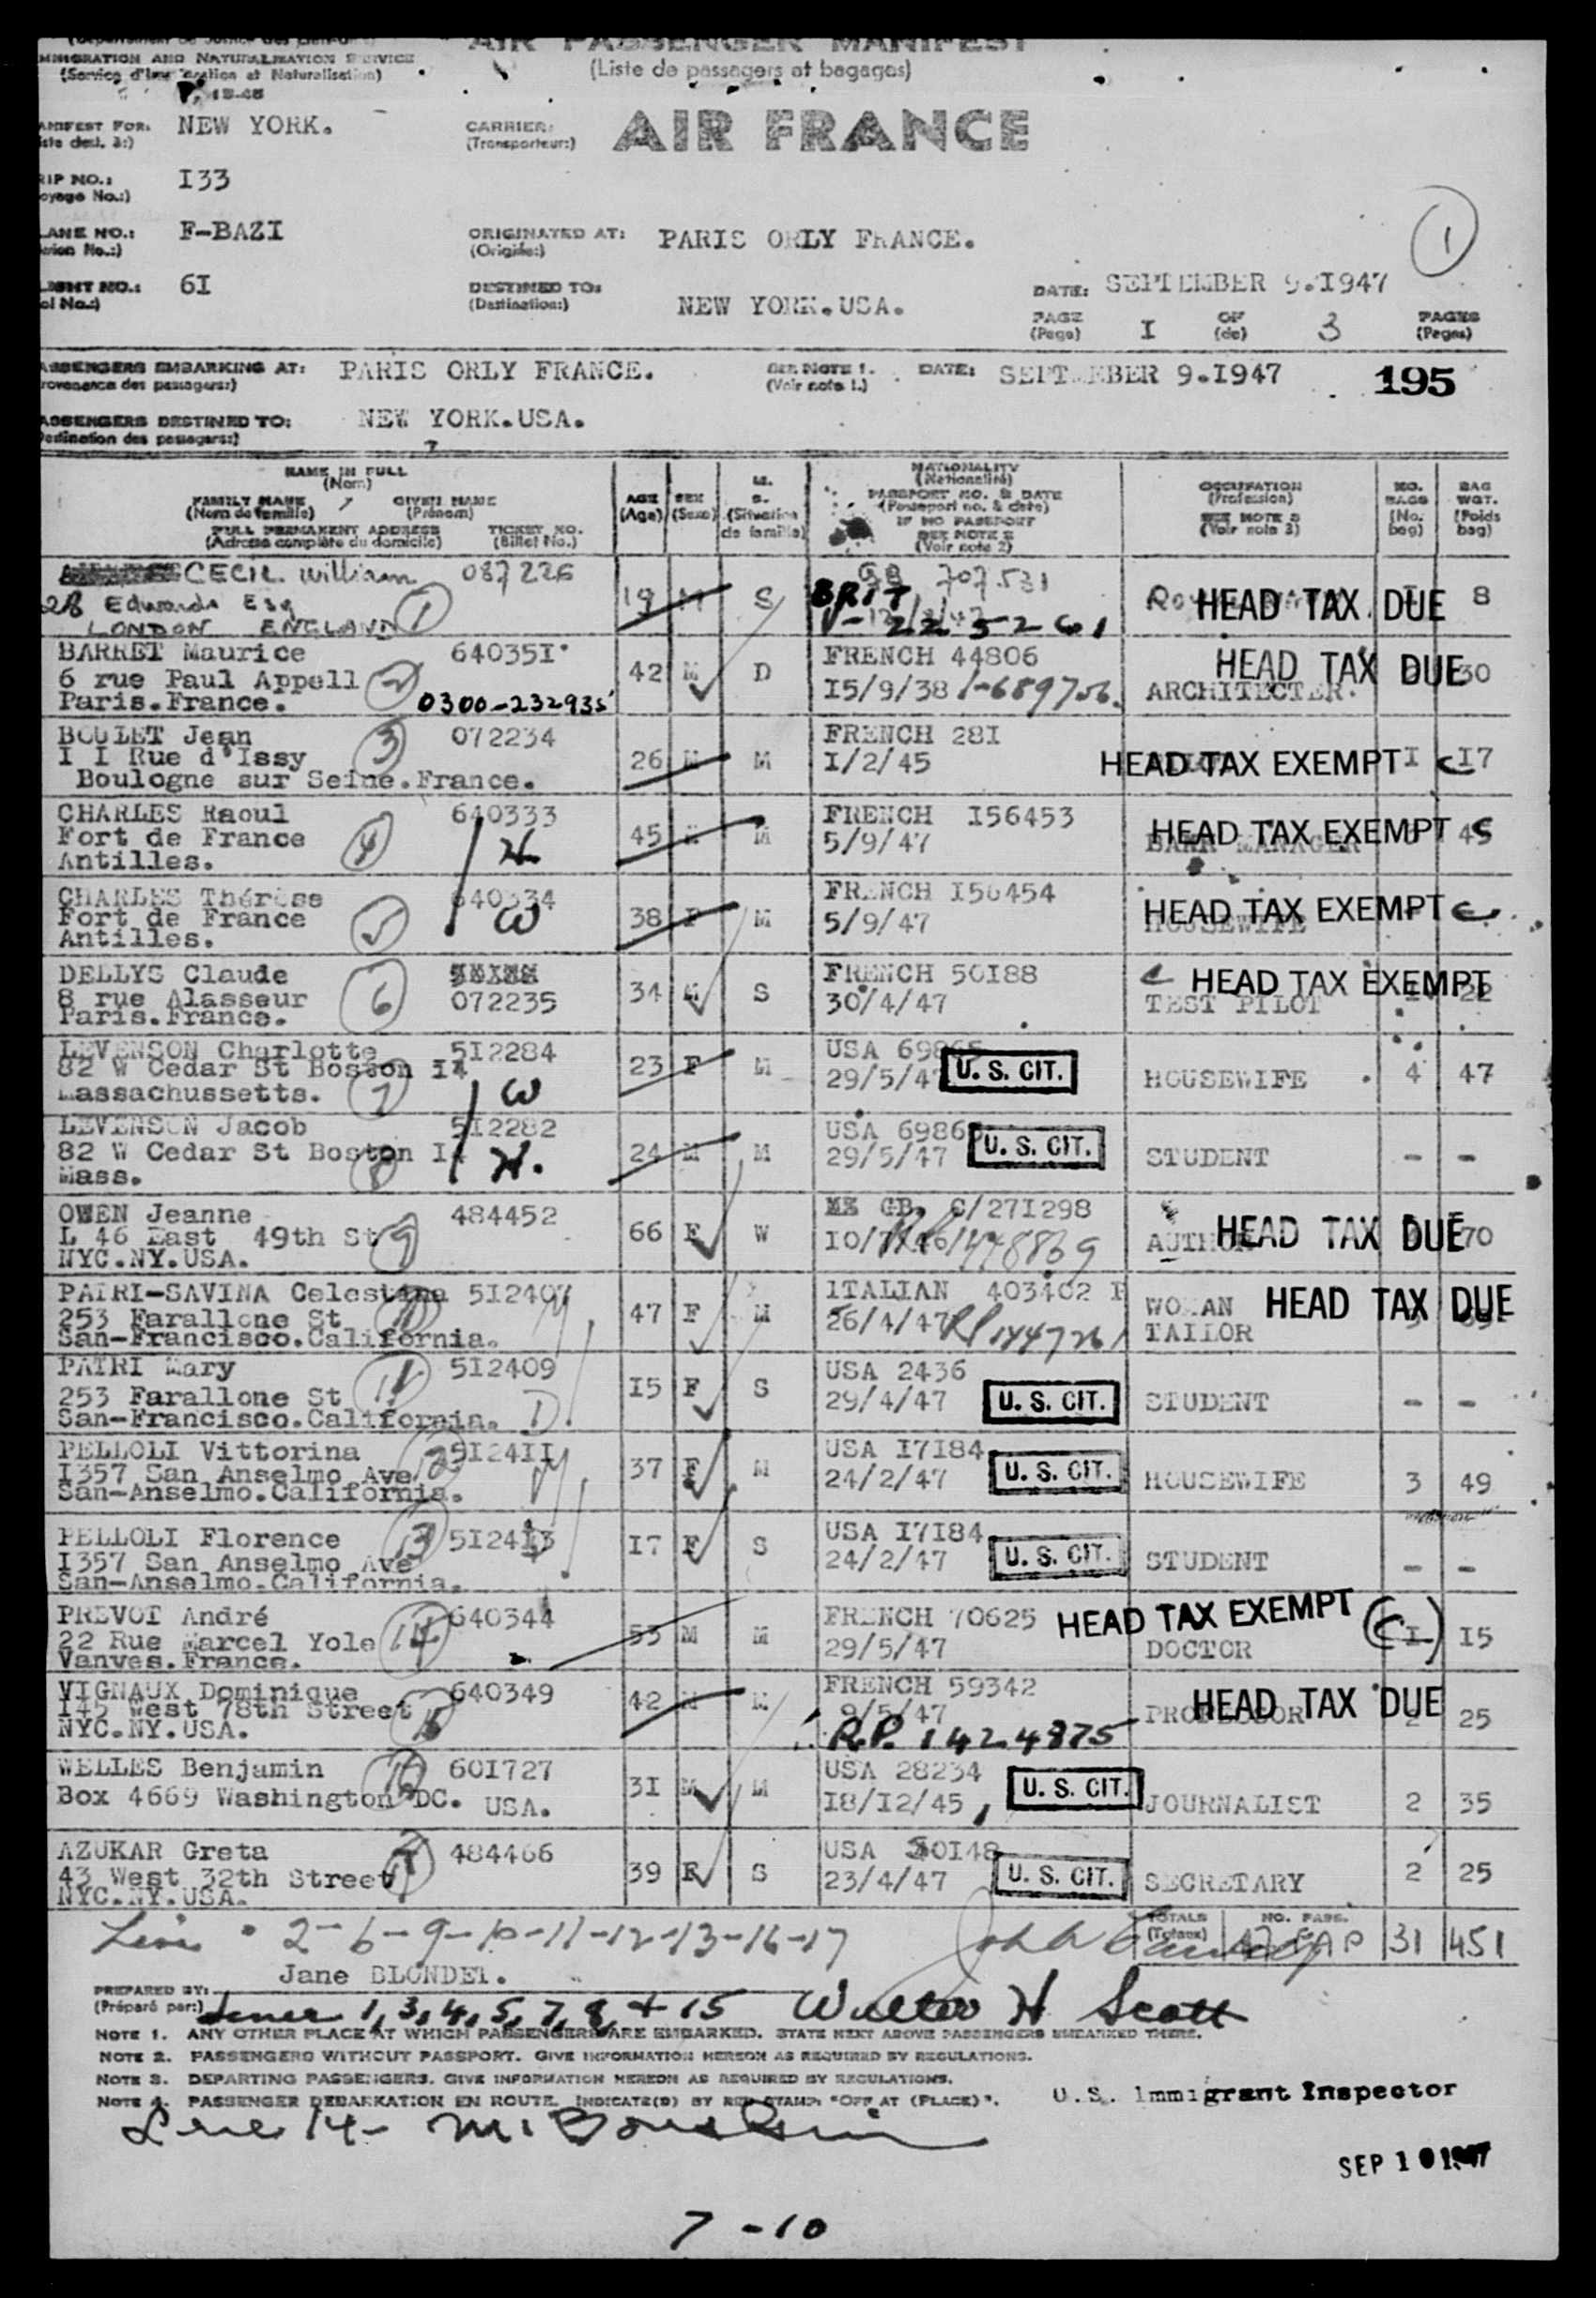 AIR PASSENGER MANIFEST
IMMIGRATION AND NATURALISATION SERVICE
(Liste de passagers et bagages)
MANIFEST FOR: NEW YORK.
CARRIER: AIR FRANCE
(Transporteur:)
TRIP NO.: I33
PLANE NO.: F-BAZI
ORIGINATED AT: PARIS ORLY FRANCE.
(Origine:)
1
FLIGHT NO.: 6I
DESTINED TO: NEW YORK.USA.
(Destination:)
DATE: SEPTEMBER 9.I947
PAGE I OF 3 PAGES
(Page) (de) (Pages)
PASSENGERS EMBARKING AT: PARIS ORLY FRANCE.
SEE NOTE 1. DATE: SEPTEMBER 9.I947 195
(Provenance des passagers:) (Voir note 1.)
PASSENGERS DESTINED TO: NEW YORK.USA.
(Destination des passagers:)
NAME IN FULL
(Nom)
FAMILY NAME GIVEN NAME
(Nom de famille) (Prénom)
FULL PERMANENT ADDRESS TICKET NO.
(Adresse complète du domicile) (Billet No.)
AGE (Age)
SEX (Sexe)
M. S. (Situation de famille)
NATIONALITY
(Nationalité)
PASSPORT NO. & DATE
(Passeport no. & date)
IF NO PASSPORT
SEE NOTE 2
(Voir note 2)
OCCUPATION
(Profession)
SEE NOTE 3
(Voir note 3)
NO. BAGS (No. bag)
BAG WGT. (Poids bag)
CECIL William 087226
28 Edwards Esq 1
LONDON ENGLAND
19 M S
GB 707.531
BRIT
V-225261
HEAD TAX DUE 8
BARRET Maurice 64035I
6 rue Paul Appell 2
Paris.France. 0300-232935
42 M D
FRENCH 44806
I5/9/38 1-689756.
ARCHITECTER.
HEAD TAX DUE 30
BOULET Jean 072234
I I Rue d'Issy 3
Boulogne sur Seine.France.
26 M M
FRENCH 28I
I/2/45
HEAD TAX EXEMPT I C I7
CHARLES Raoul 640333
Fort de France 4 H
Antilles.
45 M M
FRENCH I56453
5/9/47
BANK MANAGER
HEAD TAX EXEMPT 45
CHARLES Thérèse 640334
Fort de France 5 W
Antilles.
38 F M
FRENCH I56454
5/9/47
HOUSEWIFE
HEAD TAX EXEMPT C
DELLYS Claude
8 rue Alasseur 6 072235
Paris.France.
34 M S
FRENCH 50I88
30/4/47
TEST PILOT
C HEAD TAX EXEMPT 22
LEVENSON Charlotte 5I2284
82 W Cedar St Boston I4
Massachussetts. 7 W
23 F M
USA 69865
29/5/47 U. S. CIT.
HOUSEWIFE 4 47
LEVENSON Jacob 5I2282
82 W Cedar St Boston I4
Mass. 8 H.
24 M M
USA 6986
29/5/47 U. S. CIT.
STUDENT - -
OWEN Jeanne 484452
L 46 East 49th St 9
NYC.NY.USA.
66 F W
GB. C/27I298
AUTHOR
HEAD TAX DUE 70
PATRI-SAVINA Celestina 5I2407
253 Farallone St 10
San-Francisco.California.
47 F M
ITALIAN 403402 P
26/4/47 RP 1447261
WOMAN
TAILOR
HEAD TAX DUE
PATRI Mary 5I2409
253 Farallone St 11
San-Francisco.California. D
I5 F S
USA 2436
29/4/47 U. S. CIT.
STUDENT - -
PELLOLI Vittorina 5I24II
I357 San Anselmo Ave 12
San-Anselmo.California. M
37 F M
USA I7I84
24/2/47 U. S. CIT.
HOUSEWIFE 3 49
PELLOLI Florence 5I24I3
I357 San Anselmo Ave 13
San-Anselmo.California.
I7 F S
USA I7I84
24/2/47 U. S. CIT.
STUDENT - -
PREVOT André 640344
22 Rue Marcel Yole 14
Vanves.France.
53 M M
FRENCH 70625
29/5/47
HEAD TAX EXEMPT (C)
DOCTOR I I5
VIGNAUX Dominique 640349
I45 West 78th Street 15
NYC.NY.USA.
42 M M
FRENCH 59342
9/5/47
R.P. 1424875
PROFESSOR
HEAD TAX DUE 2 25
WELLES Benjamin 60I727
Box 4669 Washington DC. USA. 16
3I M M
USA 28234
I8/I2/45 U. S. CIT.
JOURNALIST 2 35
AZUKAR Greta 484466
43 West 32th Street 17
NYC.NY.USA.
39 F S
USA 50I48
23/4/47 U. S. CIT.
SECRETARY 2 25
2-6-9-10-11-12-13-16-17
TOTALS NO. PASS.
(Totaux) 31 451
Jane BLONDET.
PREPARED BY:
(Préparé par:)
1, 3, 4, 5, 7, 8, + 15 Walter H Scott
NOTE 1. ANY OTHER PLACE AT WHICH PASSENGERS ARE EMBARKED. STATE NEXT ABOVE PASSENGERS EMBARKED THERE.
NOTE 2. PASSENGERS WITHOUT PASSPORT. GIVE INFORMATION HEREON AS REQUIRED BY REGULATIONS.
NOTE 3. DEPARTING PASSENGERS. GIVE INFORMATION HEREON AS REQUIRED BY REGULATIONS.
NOTE 4. PASSENGER DEBARKATION EN ROUTE. INDICATE(D) BY RED STAMP "OFF AT (PLACE)".
U.S. Immigrant Inspector
Line 14-
SEP 10 1947
7-10